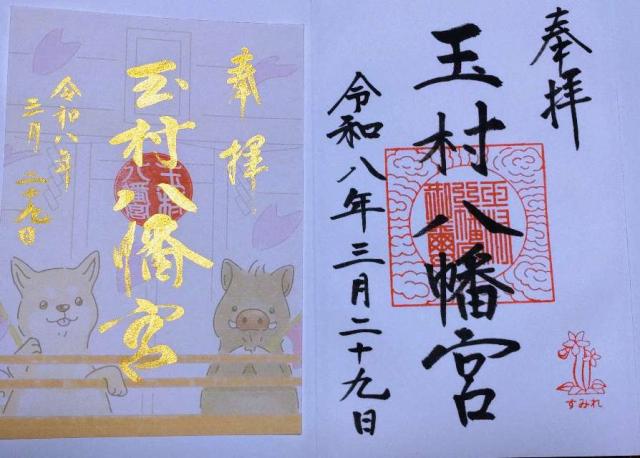 奉拝
玉村八幡宮
令和八年三月二十九日
すみれ
奉拝
玉村八幡宮
令和八年
三月二十九日